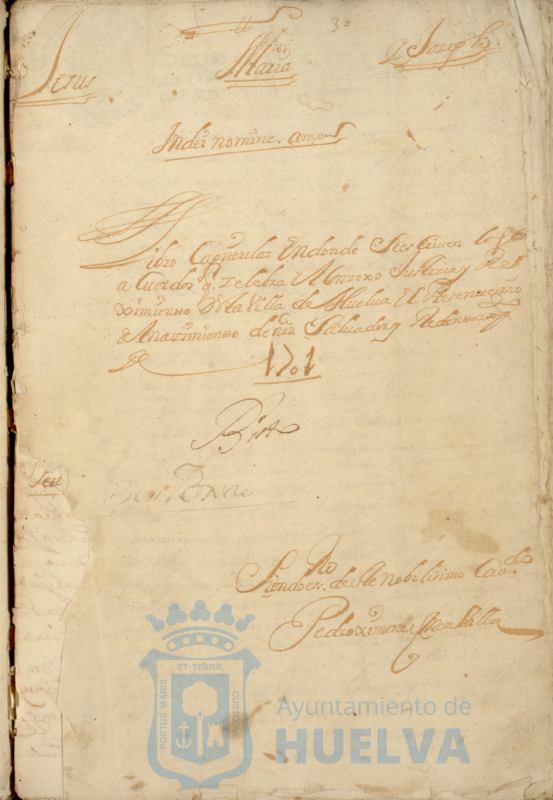 30
Jesus Maria y Joseph
Indei nomine. Amen
Libro Capitular Endonde Seescriven los
acuerdos q. zelebra El Conzexo Justizia y Rex
ximiento de la Villa de Huelva El Presente año
de Nazimiento de nro Salvador y Redentor
1701
Visto
Siendo ess.no deste Nobilisimo Cavdo
Pedro Ximenez Mansilla
PORTUS MARIS
ET TERRÆ
CUSTODIA
Ayuntamiento de
HUELVA